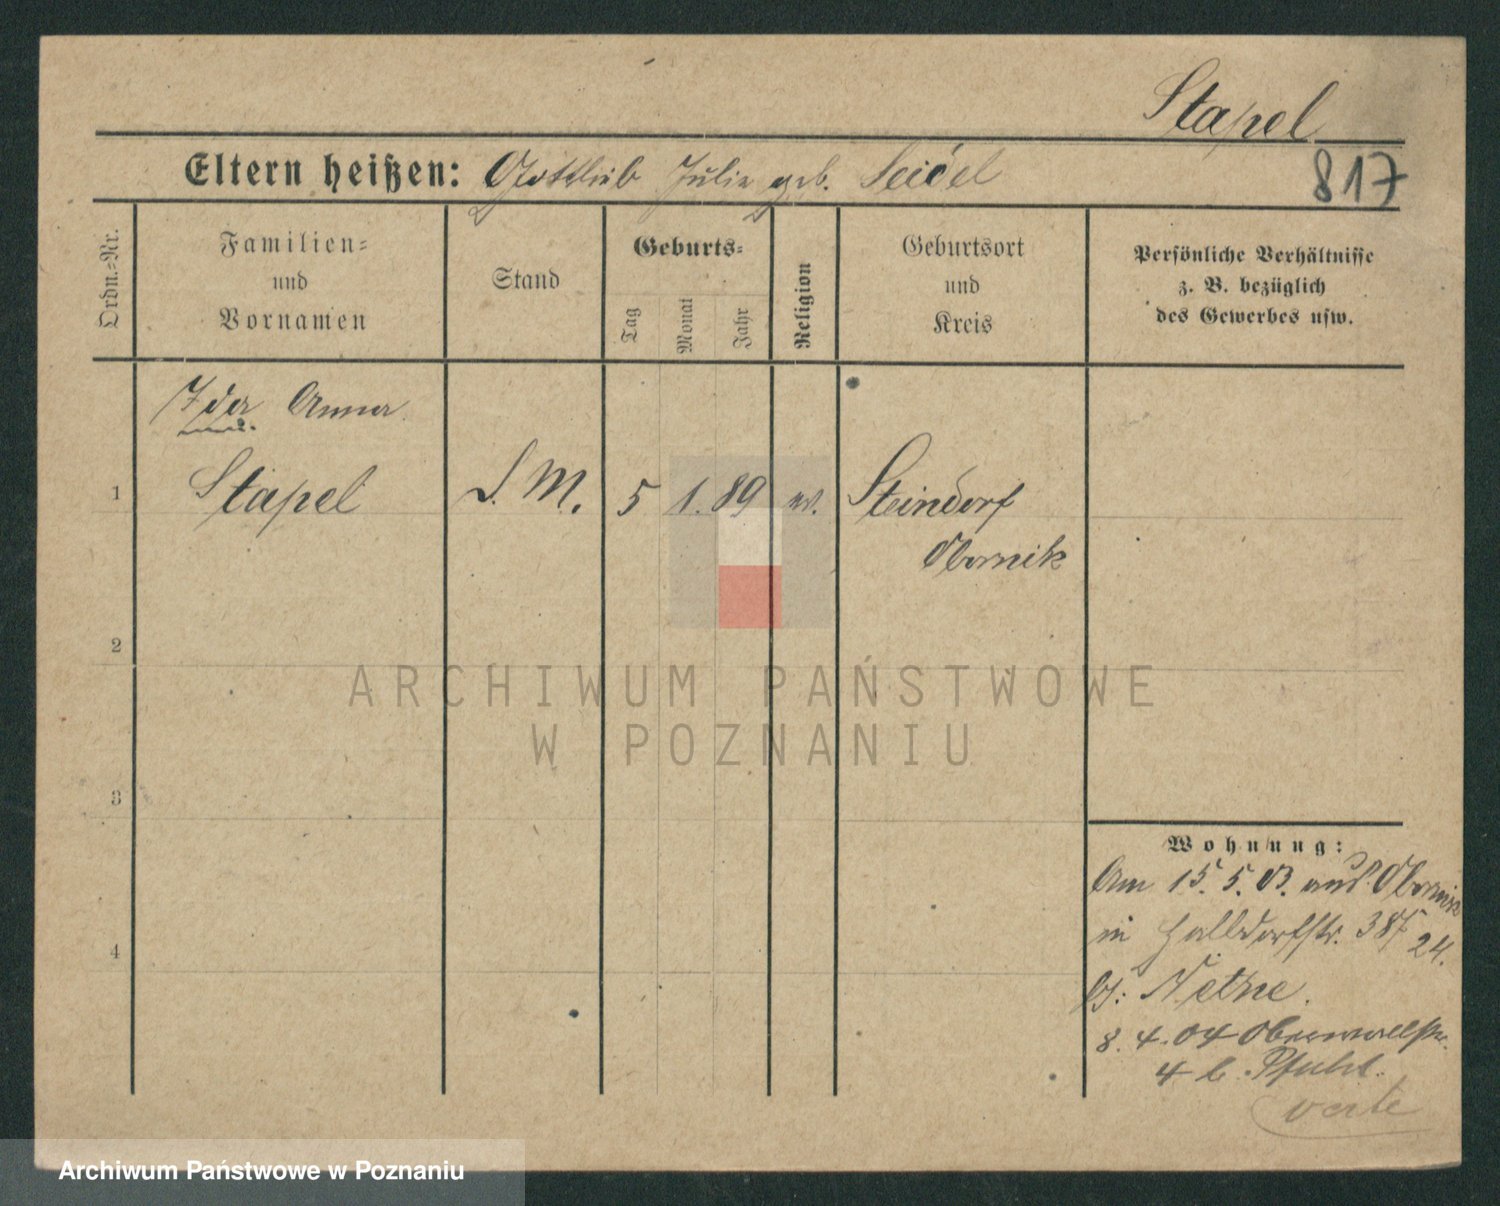 Stapel
817
Eltern heißen: Gottlieb Julie geb. Seidel
Ordn.=Nr.
Familien=
und
Vornamen
Stand
Geburts=
Tag
Monat
Jahr
Religion
Geburtsort
und
Kreis
Persönliche Verhältnisse
z. B. bezüglich
des Gewerbes usw.
Ida Anna
1 Stapel D. M. 5 1. 89 ev. Steindorf
Obornik
2
3
4
Wohnung:
Am 15. 5. 03. aus Obornik
in Halbdorfstr. 38
24.
bei: Netze.
8. 4. 04 Oberwallstr.
4 b. Pfuhl.
verte
ARCHIWUM PAŃSTWOWE
W POZNANIU
Archiwum Państwowe w Poznaniu